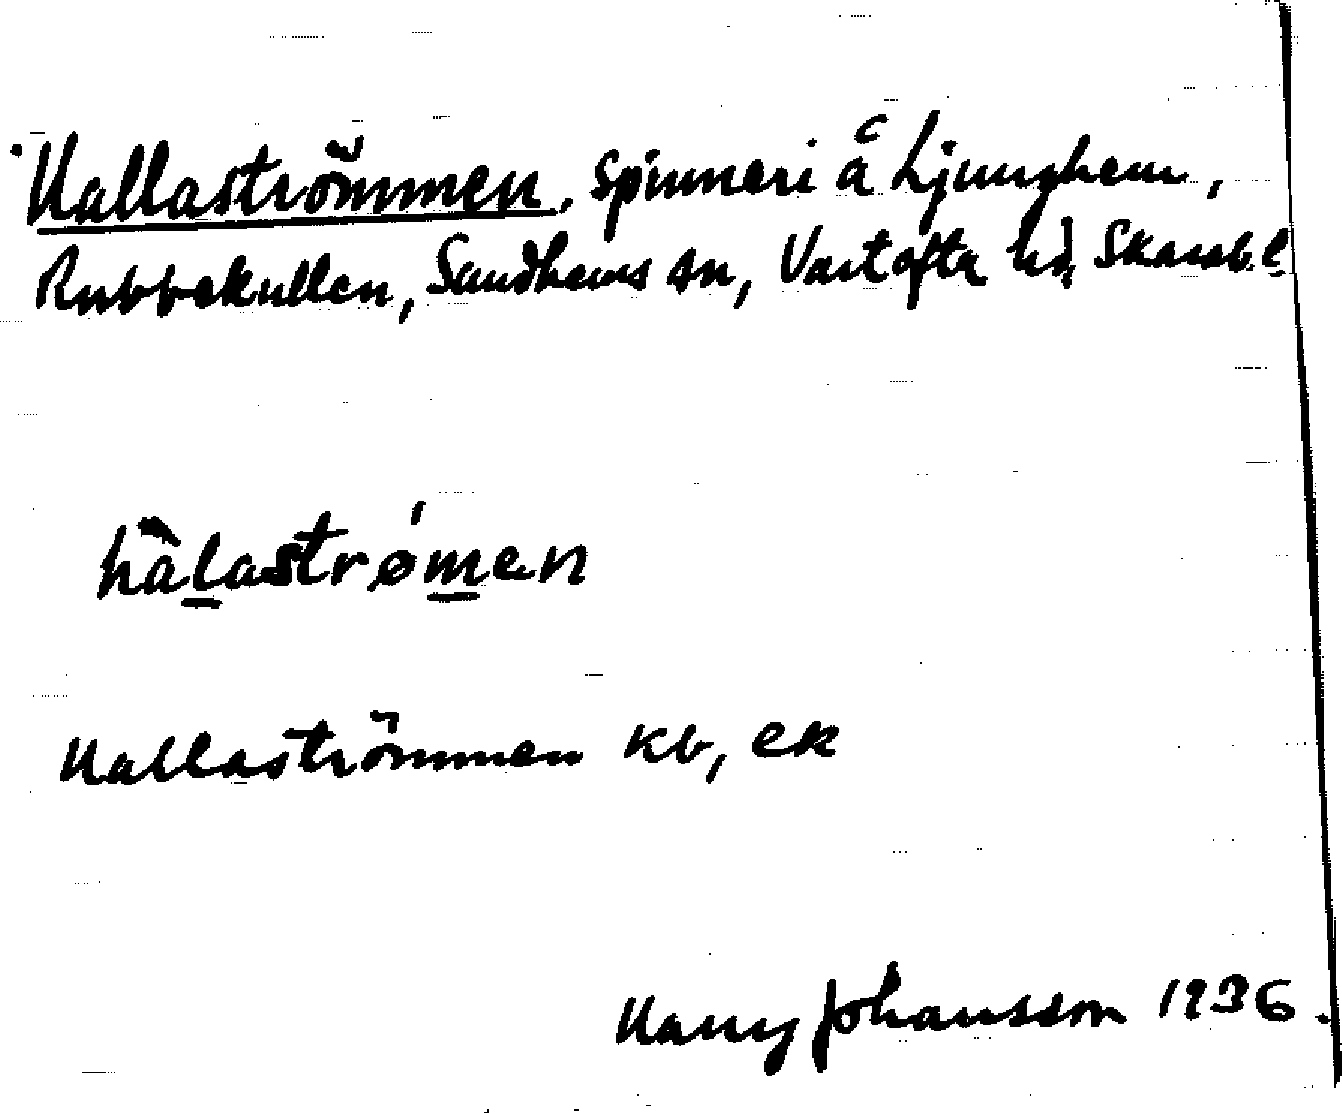 Hallaströmmen, spinneri å Ljunghem,
Rubbekullen, Sandhems sn, Vartofta hd, Skarab. l.
hàlastrømen
Hallaströmmen kb, ek
Harry Johansson 1936.